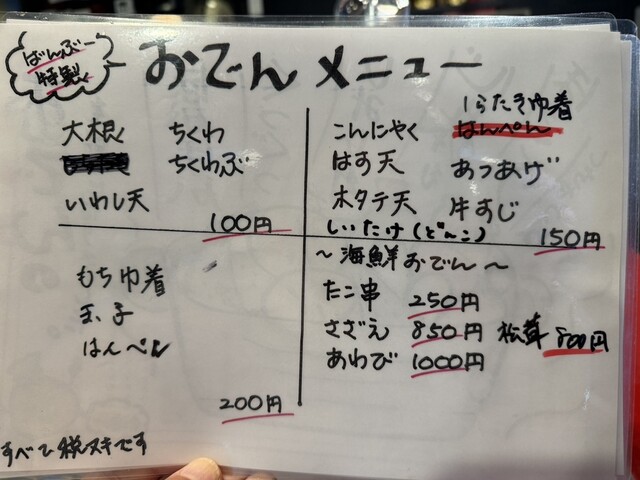 ばんぶー
特製
おでんメニュー
大根 ちくわ
ちくわぶ
いわし天
100円
しらたき巾着
こんにゃく はんぺん
はす天 あつあげ
ホタテ天 牛すじ
しいたけ(どんこ)
150円
もち巾着
玉子
はんぺん
200円
〜海鮮おでん〜
たこ串 250円
さざえ 850円 松茸 800円
あわび 1000円
すべて税ヌキです